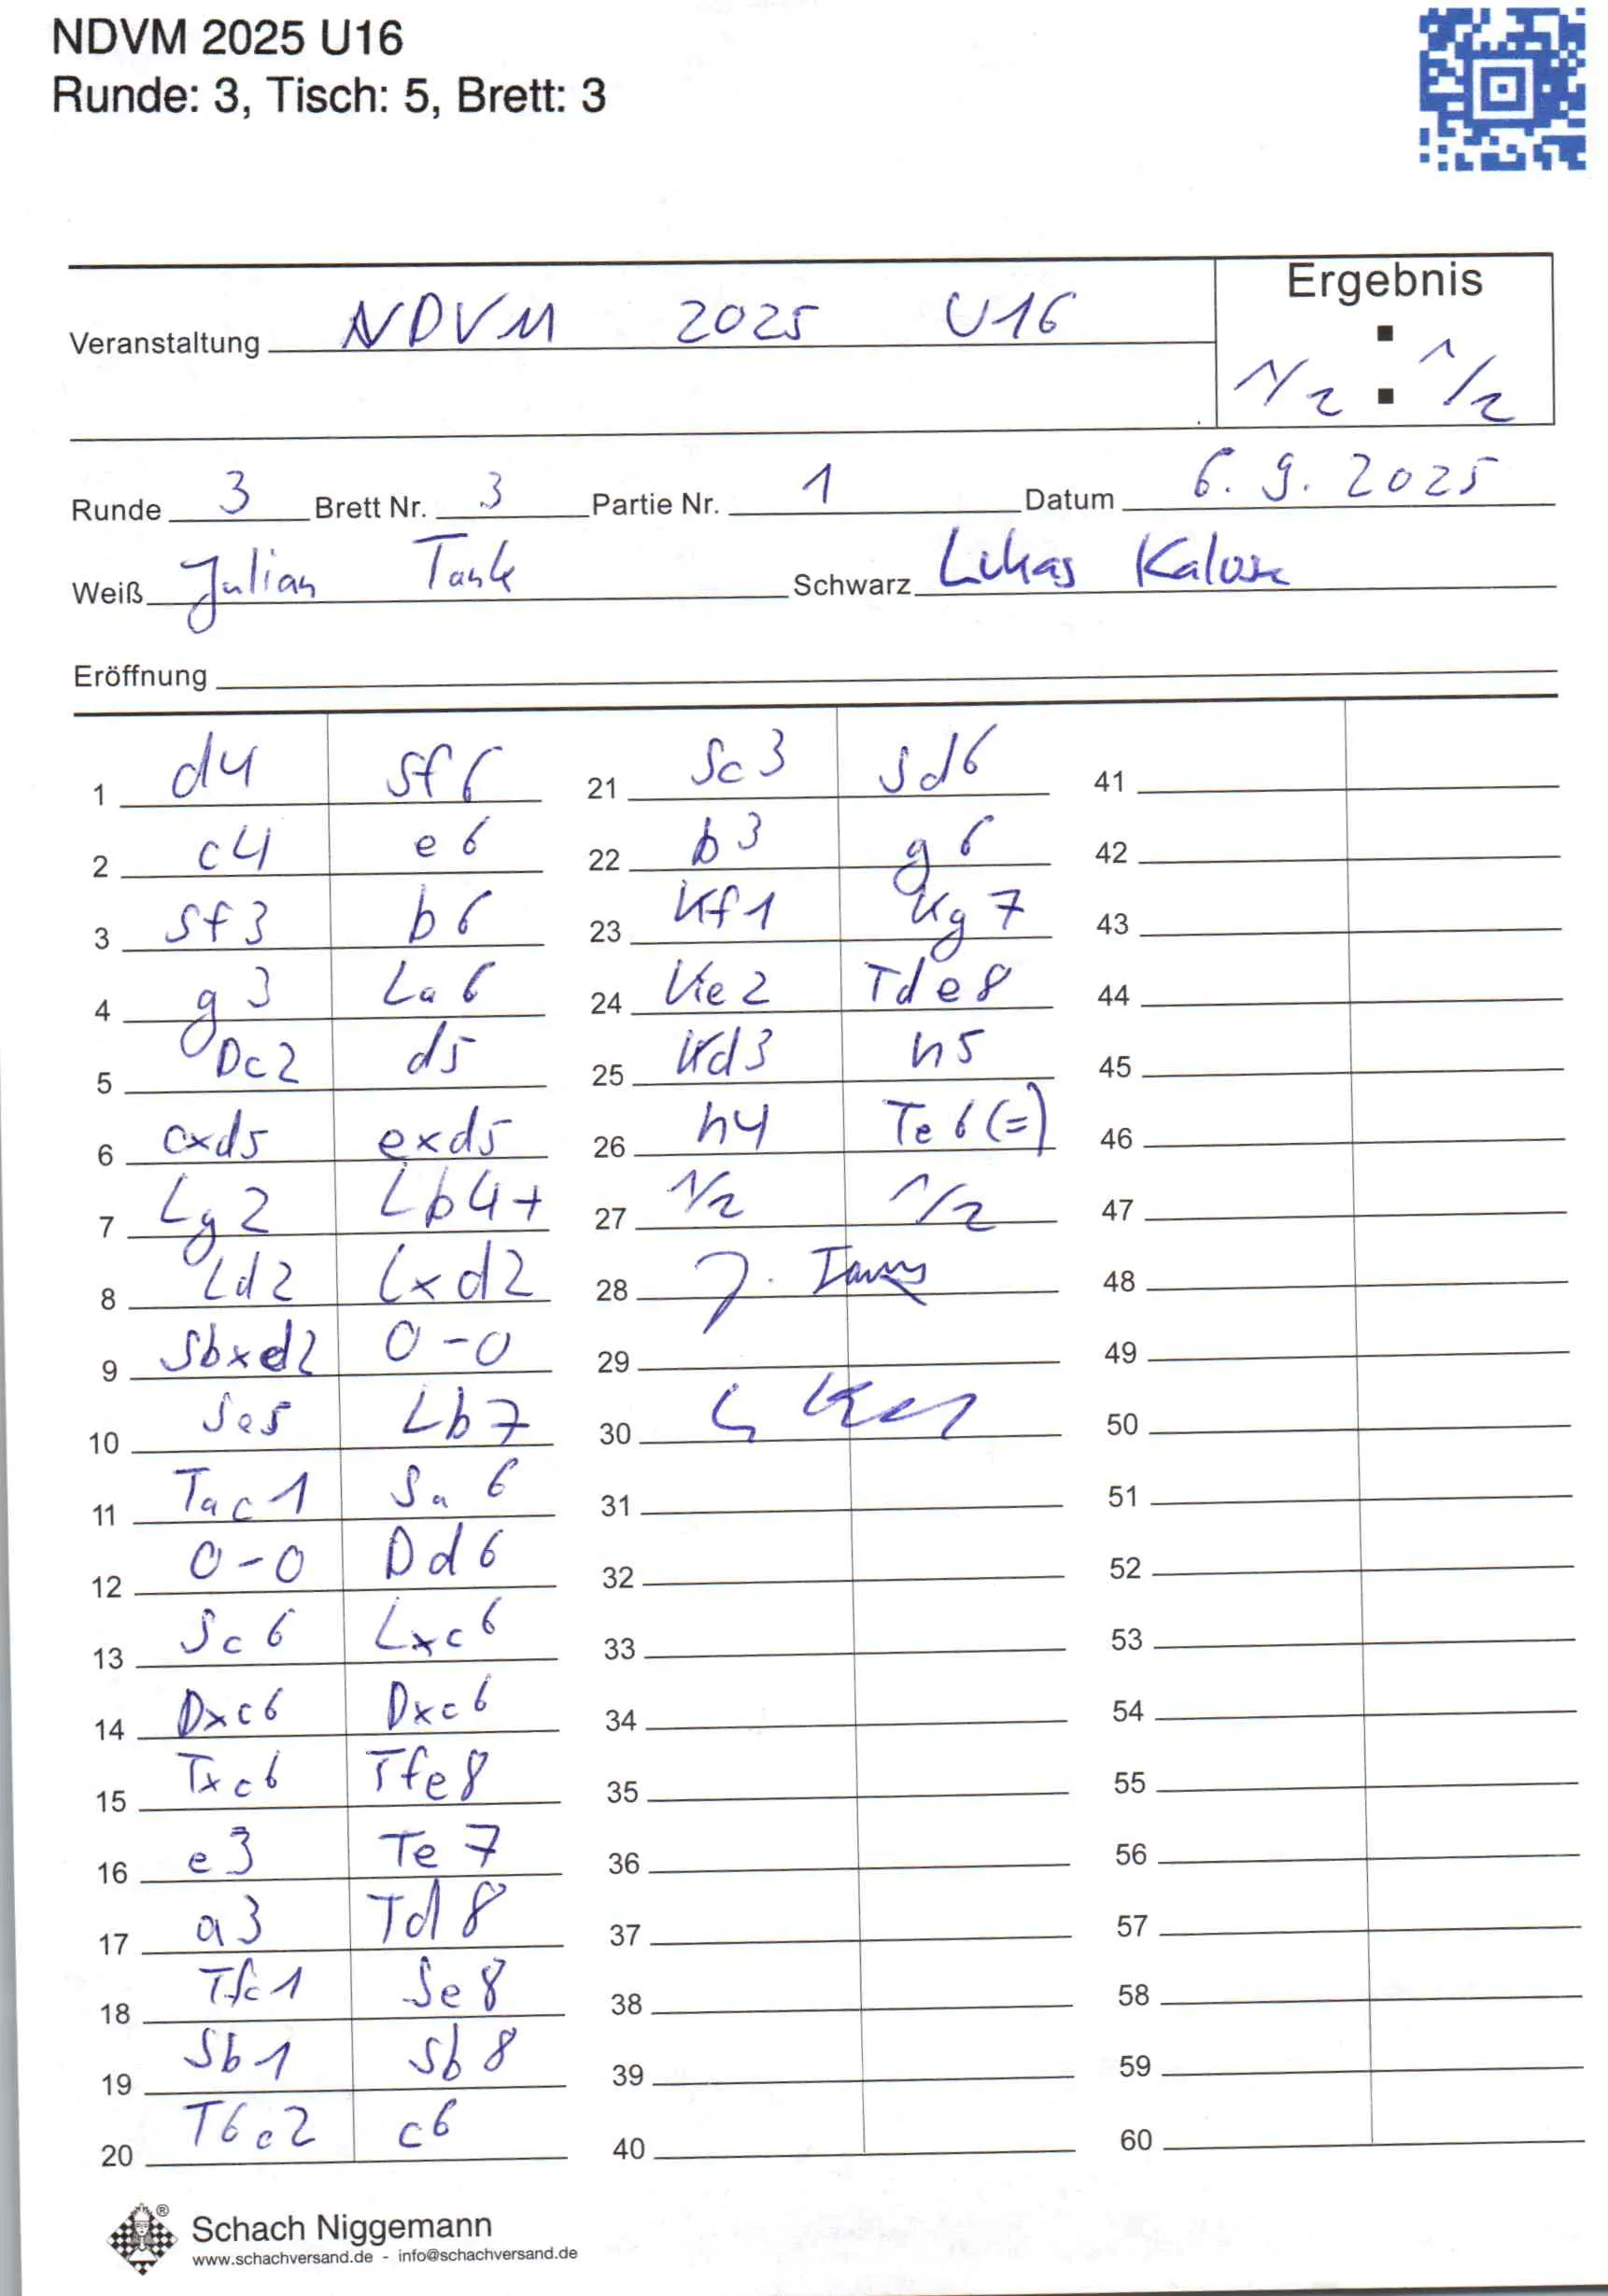 NDVM 2025 U16
Runde: 3, Tisch: 5, Brett: 3
Ergebnis
Veranstaltung NDVM 2025 U16
1/2 : 1/2
Runde 3 Brett Nr. 3 Partie Nr. 1 Datum 6.9.2025
Weiß Julian Schwarz Lukas
Eröffnung
1 d4 Sf6
2 c4 e6
3 Sf3 b6
4 g3 La6
5 Dc2 d5
6 cxd5 exd5
7 Lg2 Lb4+
8 Ld2 Lxd2
9 Sbxd2 0-0
10 Se5 Lb7
11 Tac1 Sa6
12 0-0 Dd6
13 Sc6 Lxc6
14 Dxc6 Dxc6
15 Txc6 Tfe8
16 e3 Te7
17 a3 Td8
18 Tfc1 Se8
19 Sb1 Sb8
20 T6c2 c6
21 Sc3 Sd6
22 b3 g6
23 Kf1 Kg7
24 Ke2 Tde8
25 Kd3 h5
26 h4 Te6(=)
27 1/2 1/2
28
29
30
31
32
33
34
35
36
37
38
39
40
41
42
43
44
45
46
47
48
49
50
51
52
53
54
55
56
57
58
59
60
Schach Niggemann
www.schachversand.de - info@schachversand.de